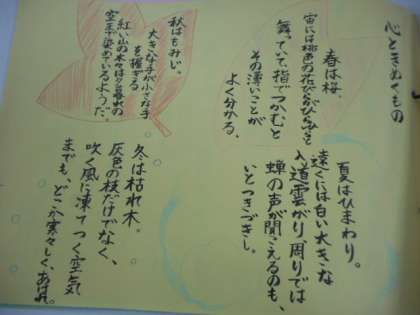 心ときめくもの
春は桜、
宙には桃色の花びらがひらひらと
舞っていて、指でつかむと
その薄いことが
よく分かる。
夏はひまわり。
遠くには白い大きな
入道雲があり、周りでは
蝉の声が聞こえるのも、
いとつきづきし。
秋はもみじ。
大きな手が小さな手
を握ぎる
紅い山の木々は夕暮れの
空まで染めているようだ。
冬は枯れ木。
灰色の枝だけでなく、
吹く風に凍てつく空気
までも、どこか寒々しく、あはれ。